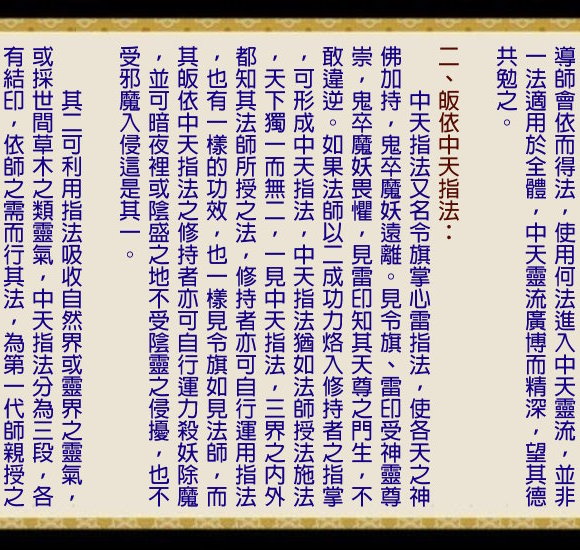 導師會依而得法，使用何法進入中天靈流，並非
一法適用於全體，中天靈流廣博而精深，望其德
共勉之。
二、皈依中天指法：
中天指法又名令旗掌心雷指法，使各天之神
佛加持，鬼卒魔妖遠離。見令旗、雷印受神靈尊
崇，鬼卒魔妖畏懼，見雷印知其天尊之門生，不
敢違逆。如果法師以二成功力烙入修持者之指掌
，可形成中天指法，中天指法猶如法師授法施法
，天下獨一而無二，一見中天指法，三界之內外
都知其法師所授之法，修持者亦可自行運用指法
，也有一樣的功效，也一樣見令旗如見法師，而
其皈依中天指法之修持者亦可自行運力殺妖除魔
，並可暗夜裡或陰盛之地不受陰靈之侵擾，也不
受邪魔入侵這是其一。
其二可利用指法吸收自然界或靈界之靈氣，
或採世間草木之類靈氣，中天指法分為三段，各
有結印，依師之需而行其法，為第一代師親授之